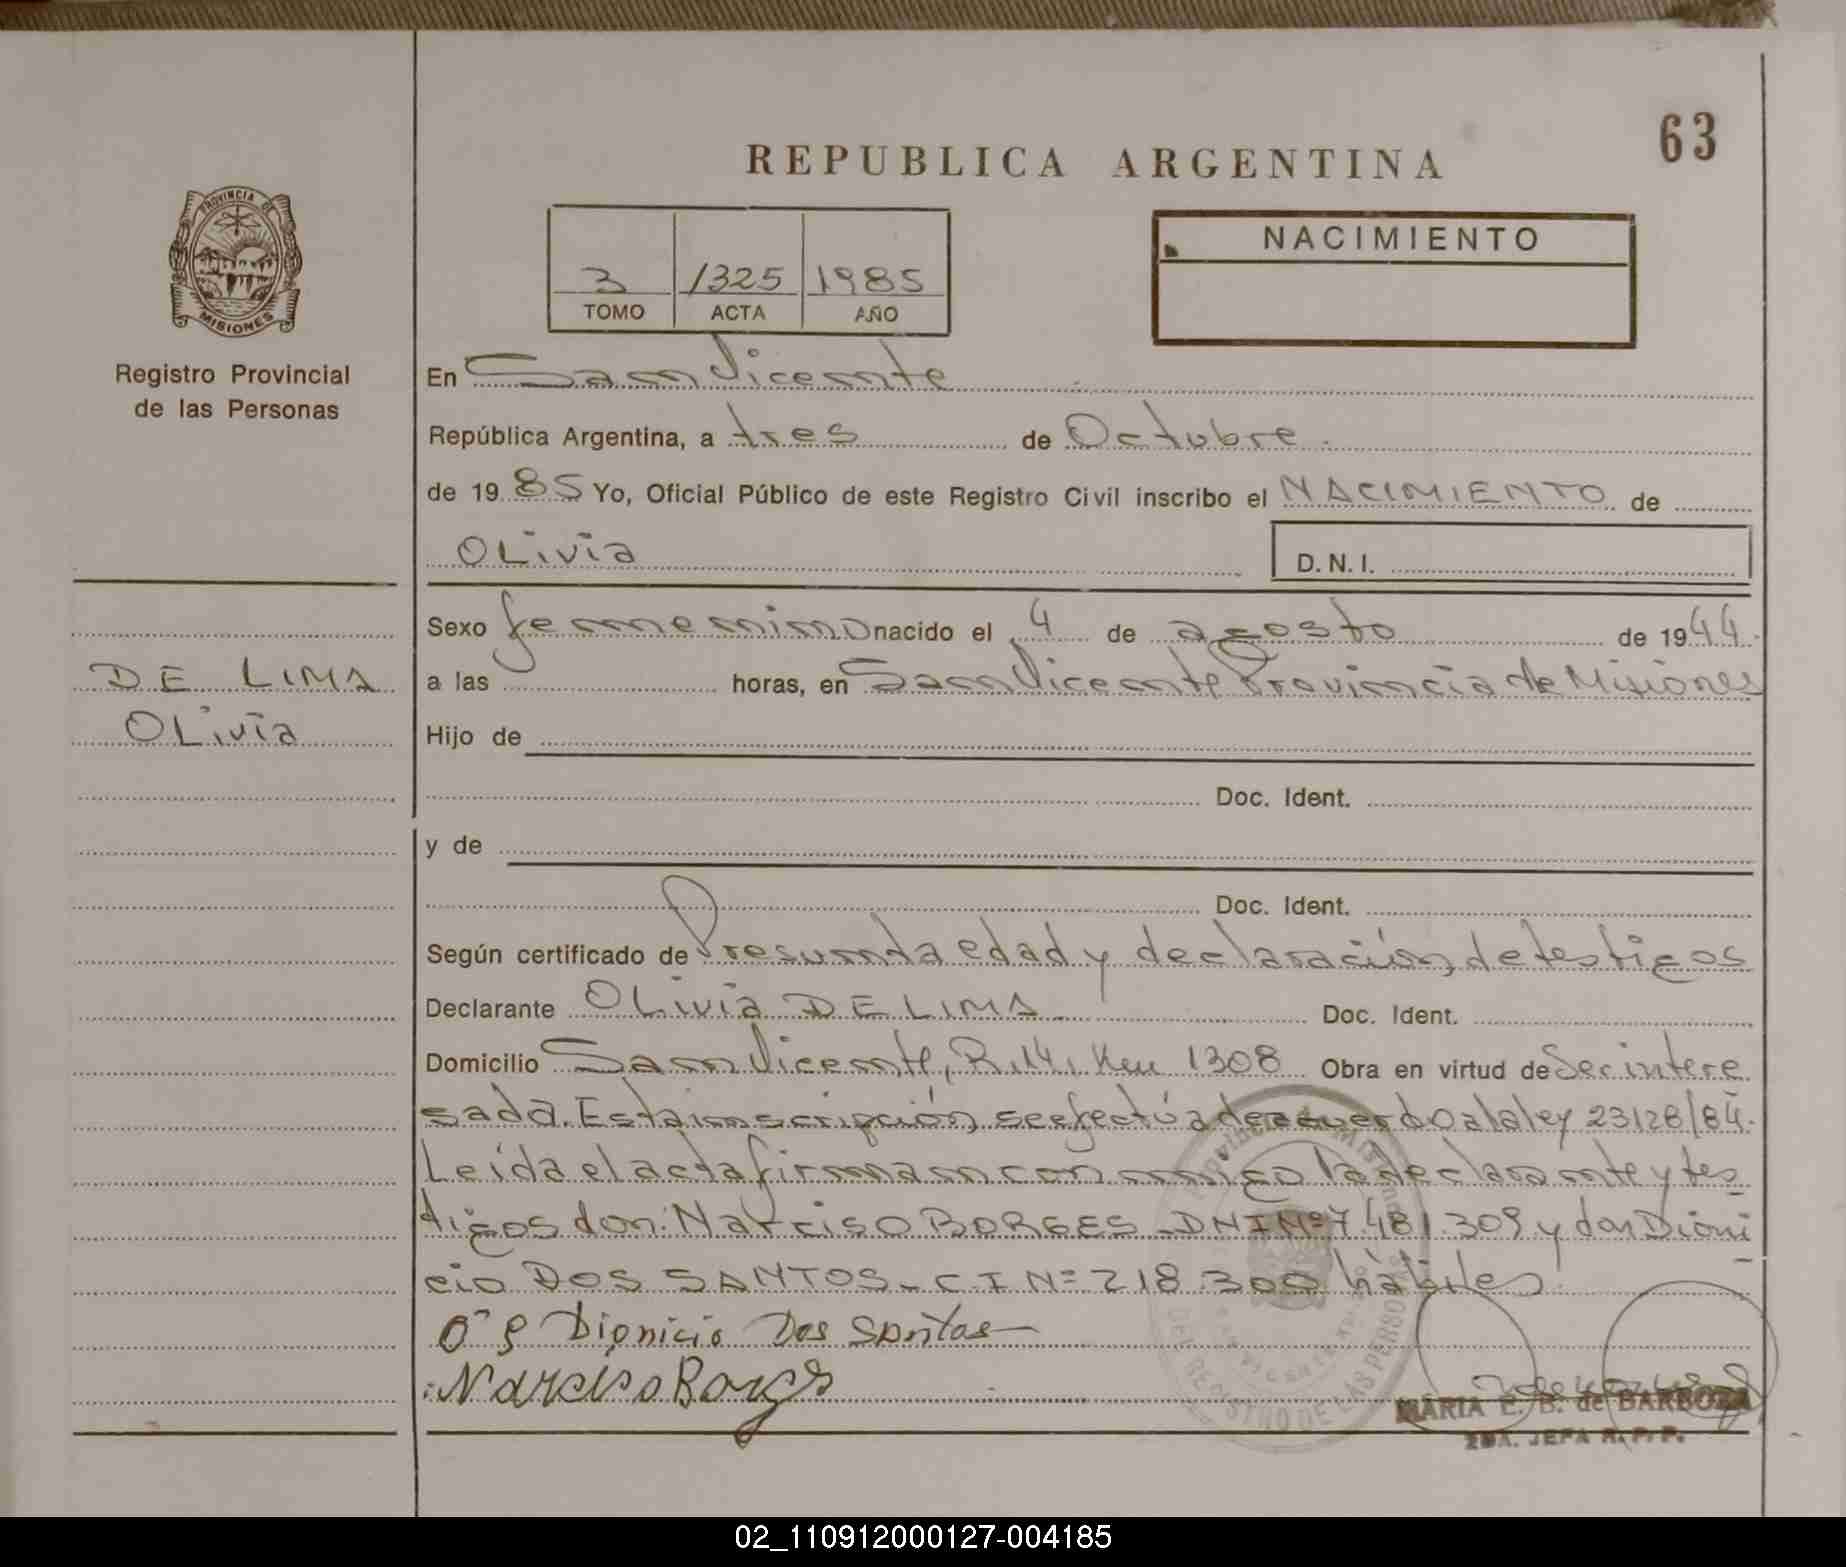 63
REPUBLICA ARGENTINA
PROVINCIA DE
MISIONES
Registro Provincial
de las Personas
3 1325 1985
TOMO ACTA AÑO
NACIMIENTO
En San Vicente
República Argentina, a tres de Octubre.
de 19 85 Yo, Oficial Público de este Registro Civil inscribo el NACIMIENTO de
OLivia D.N.I.
DE LIMA
OLivia
Sexo femenino nacido el 4 de agosto de 19 44.
a las horas, en San Vicente Provincia de Misiones
Hijo de
Doc. Ident.
y de
Doc. Ident.
Según certificado de Presunta edad y declaración de testigos
Declarante OLivia DE LIMA. Doc. Ident.
Domicilio San Vicente, R.14, Km 1308 Obra en virtud de Ser intere
sada. Esta inscripción se efectúa de acuerdo a la ley 23128/84.
Leída el acta firman conmigo la declarante y tes
tigos don: Narciso BORGES - DNI Nº 7.481.309 y don Dioni
cio DOS SANTOS - C.I Nº 218.300 hábiles.
Dionicio Dos Santos
Narciso Borges
MARIA E. B. de BARBOZA
2DA. JEFA R. P. P.
02_110912000127-004185